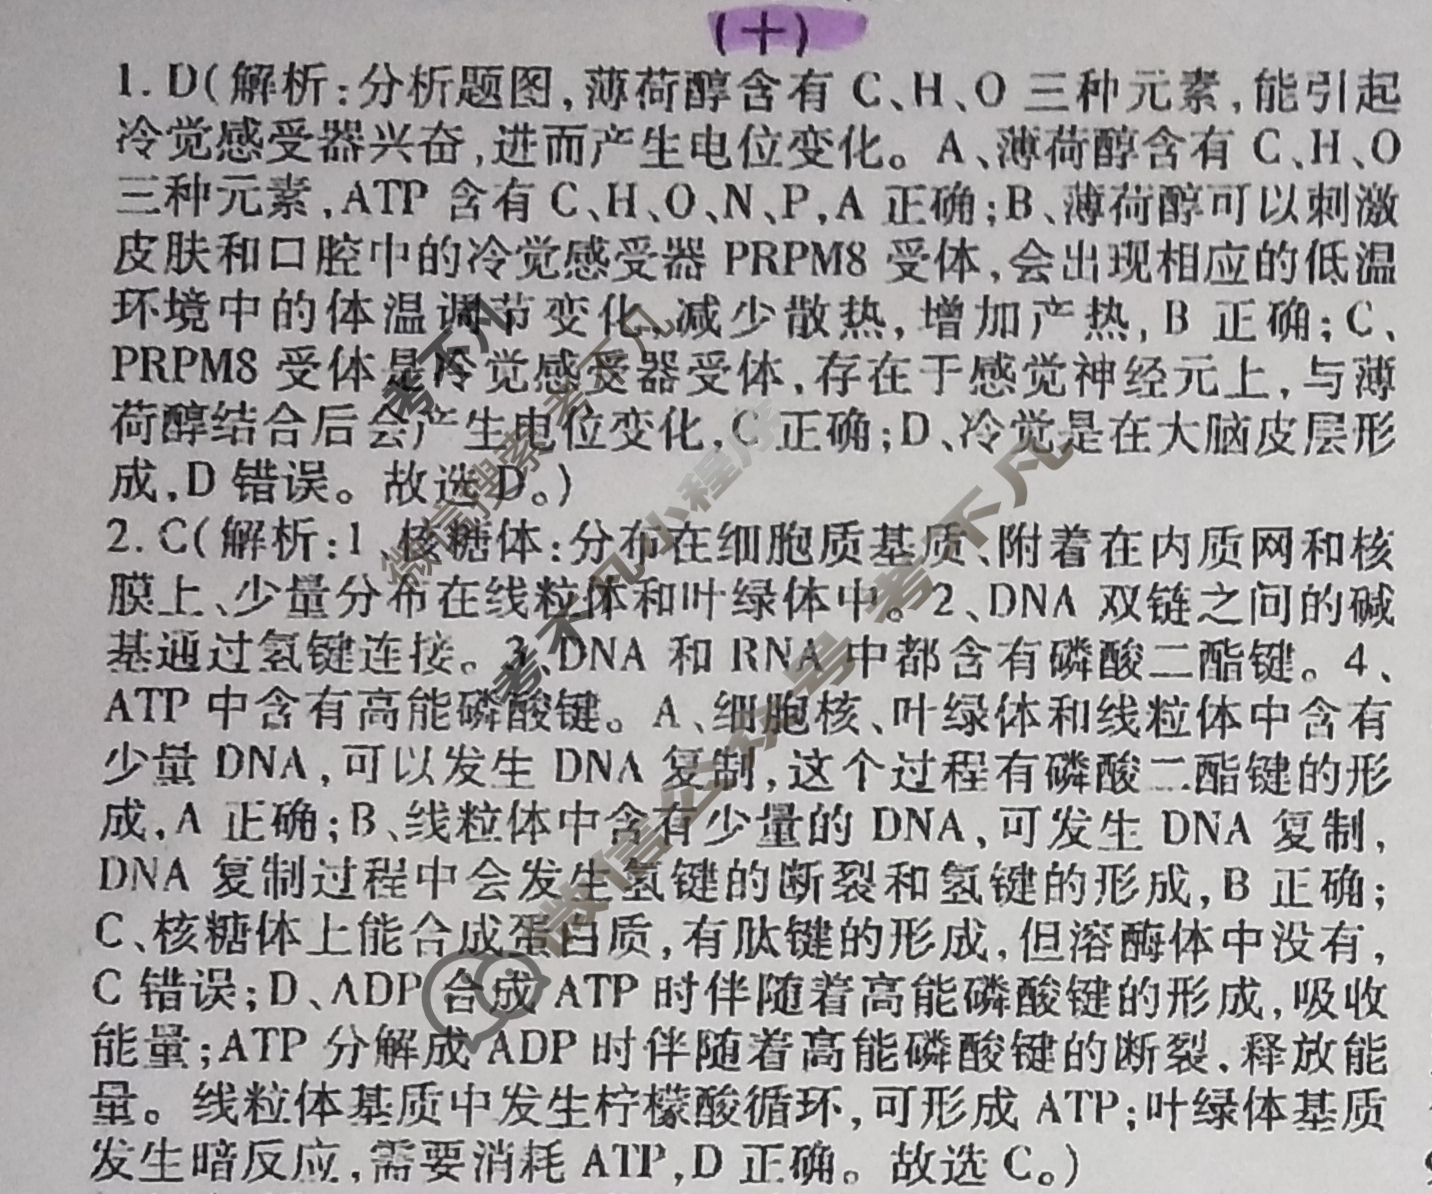 (十)
1. D(解析:分析题图,薄荷醇含有 C、H、O 三种元素,能引起
冷觉感受器兴奋,进而产生电位变化。A、薄荷醇含有 C、H、O
三种元素,ATP 含有 C、H、O、N、P,A 正确;B、薄荷醇可以刺激
皮肤和口腔中的冷觉感受器 PRPM8 受体,会出现相应的低温
环境中的体温调节变化,减少散热,增加产热,B 正确;C、
PRPM8 受体是冷觉感受器受体,存在于感觉神经元上,与薄
荷醇结合后会产生电位变化,C 正确;D、冷觉是在大脑皮层形
成,D 错误。故选 D。)
2. C(解析:1、核糖体:分布在细胞质基质、附着在内质网和核
膜上、少量分布在线粒体和叶绿体中。2、DNA 双链之间的碱
基通过氢键连接。3、DNA 和 RNA 中都含有磷酸二酯键。4、
ATP 中含有高能磷酸键。A、细胞核、叶绿体和线粒体中含有
少量 DNA,可以发生 DNA 复制,这个过程有磷酸二酯键的形
成,A 正确;B、线粒体中含有少量的 DNA,可发生 DNA 复制,
DNA 复制过程中会发生氢键的断裂和氢键的形成,B 正确;
C、核糖体上能合成蛋白质,有肽键的形成,但溶酶体中没有,
C 错误;D、ADP 合成 ATP 时伴随着高能磷酸键的形成,吸收
能量;ATP 分解成 ADP 时伴随着高能磷酸键的断裂,释放能
量。线粒体基质中发生柠檬酸循环,可形成 ATP;叶绿体基质
发生暗反应,需要消耗 ATP,D 正确。故选 C。)
考不凡
微信搜索 考不凡
考不凡小程序
微信公众号 考不凡